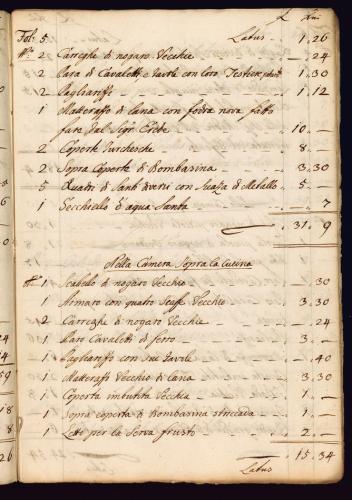 Fol: 5 Latus . 1. 26
No 2 Carreghe di nogaro Vecchie - . 24
2 Para di Cavaletti e Tavole con loro . 1. 30
2 Pagliarizzi . 1. 12
1 Matterazzo di Lana con fodra nova fatto
fare dal Sigr. Erede . 10. -
2 Coperte Turchesche . 8. -
2 Sopra Coperte di Bombasina . 3. 30
5 Quadri di Santi diversi con Suaza di Metallo . 5. -
1 Secchiello d'aqua Santa . 7
31. 9
Nella Camera Sopra la Cucina
No 1 Scabello di nogaro Vecchio . 30
1 Armaro con quatro Vecchio . 3. 30
2 Carreghe di nogaro Vecchie . 24
1 Paro Cavaletti di ferro . 3. -
1 Pagliarizzo con sue Tavole . 40
1 Matterazzo Vecchio di Lana . 3. 30
1 Coperta imbutita Vecchia . 1. -
1 Sopra coperta di Bombasina strecciata . 1. -
1 Letto per la Serva frusto . 2. -
15. 34
Latus
24
4
59
18
8
26